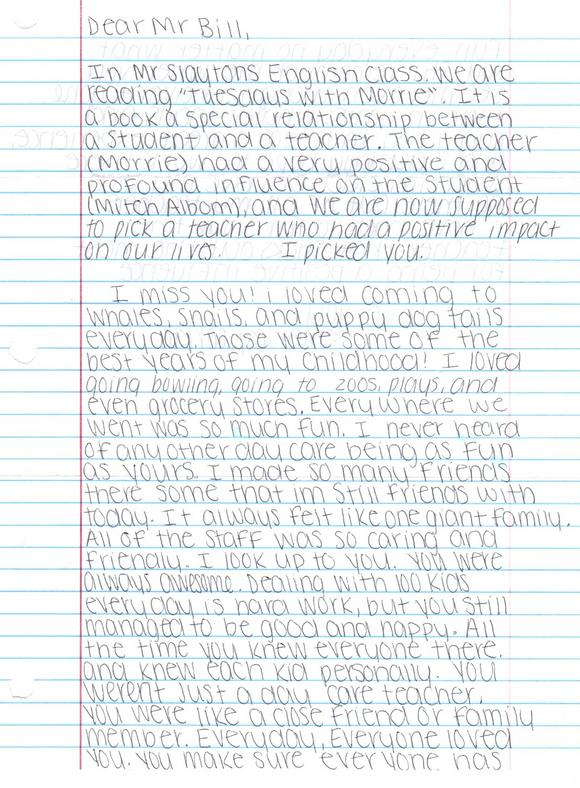 Dear Mr Bill,
In Mr Slaytons English class. We are
reading "Tuesdays with Morrie". It is
a book a special relationship between
a student and a teacher. The teacher
(Morrie) had a very positive and
profound influence on the student
(Mitch Albom), and we are now supposed
to pick a teacher who had a positive impact
on our lives. I picked you.
I miss you! i loved coming to
whales, snails, and puppy dog tails
everyday. Those were some of the
best years of my childhood! I loved
going bowling, going to zoos, plays, and
even grocery stores. Everywhere we
went was so much fun. I never heard
of any other day care being as fun
as yours. I made so many friends
there some that im still friends with
today. It always felt like one giant family.
All of the staff was so caring and
friendly. I look up to you. You were
always awesome. Dealing with 100 kids
everyday is hard work, but you still
managed to be good and happy. All
the time you knew everyone there.
and knew each kid personally. You
werent just a day care teacher.
you were like a close friend or family
member. Everyday, Everyone loved
you. You make sure everyone has